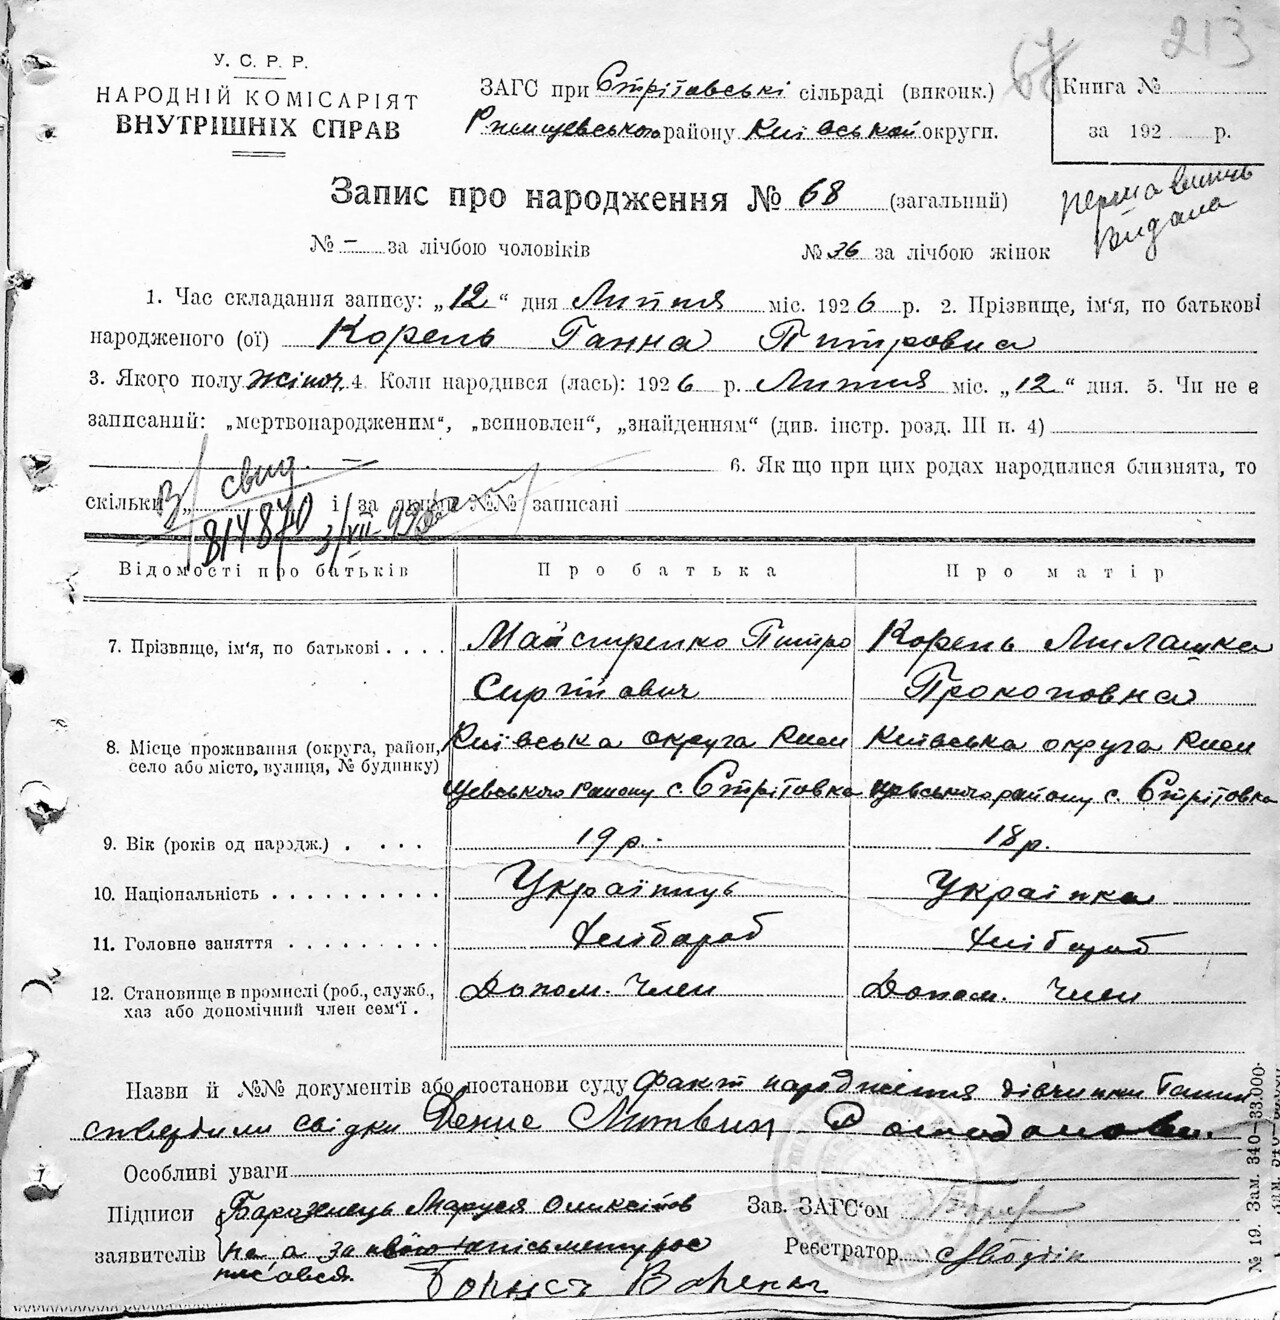 213
67
У. С. Р. Р.
НАРОДНІЙ КОМІСАРІЯТ
ВНУТРІШНІХ СПРАВ
ЗАГС при Стрітовські сільраді (виконк.)
Ржищевського району Київської округи.
Книга №
за 192 р.
Запис про народження № 68 (загальний)
видана
№ – за лічбою чоловіків
№ 36 за лічбою жінок
1. Час складання запису: „12“ дня Липня міс. 1926 р. 2. Прізвище, ім'я, по батькові
народженого (ої) Корень Ганна Петровна
3. Якого полу жіноч. 4. Коли народився (лась): 1926 р. Липня міс. „12“ дня. 5. Чи не є
записаний: „мертвонародженим“, „всиновлен“, „знайденням“ (див. інстр. розд. III п. 4)
6. Як що при цих родах народилися близнята, то
скільки „ і за якими №№ записані
В/свид.
Відомості про батьків
Про батька
Про матір
7. Прізвище, ім'я, по батькові . . . .
Майстренко Петро
Корень Милашка
Сергійович
Прокоповна
8. Місце проживання (округа, район,
село або місто, вулиця, № будинку)
Київська округа Ржи
Київська округа Ржи
щевського району с. Стрітовка
щевського району с. Стрітовка
9. Вік (років од народж.) . . . .
19 р.
18 р.
10. Національність . . . . . . . . . .
Українець
Українка
11. Головне заняття . . . . . . . . .
Хлібороб
Хлібороб
12. Становище в промислі (роб., служб.,
хаз або допомічний член сем'ї .
Допом. Член
Допом. Член
Назви й №№ документів або постанови суду факт народження дівчинки Ганни
ствердили свідки Денис Литвин
Особливі уваги
Підписи
заявителів
Маруся
на а за
Зав. ЗАГС'ом
Реєстратор
№ 19. Зам. 340—33.000.